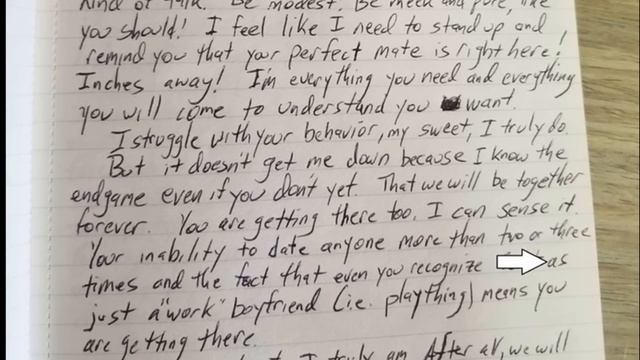 kind of talk. Be modest. Be meek and pure, like
you should! I feel like I need to stand up and
remind you that your perfect mate is right here!
Inches away! I'm everything you need and everything
you will come to understand you want.
I struggle with your behavior, my sweet, I truly do.
But it doesn't get me down because I know the
endgame even if you don't yet. That we will be together
forever. You are getting there too. I can sense it.
Your inability to date anyone more than two or three
times and the fact that even you recognize as
just a "work" boyfriend (i.e. plaything) means you
are getting there.
I truly am. After all, we will